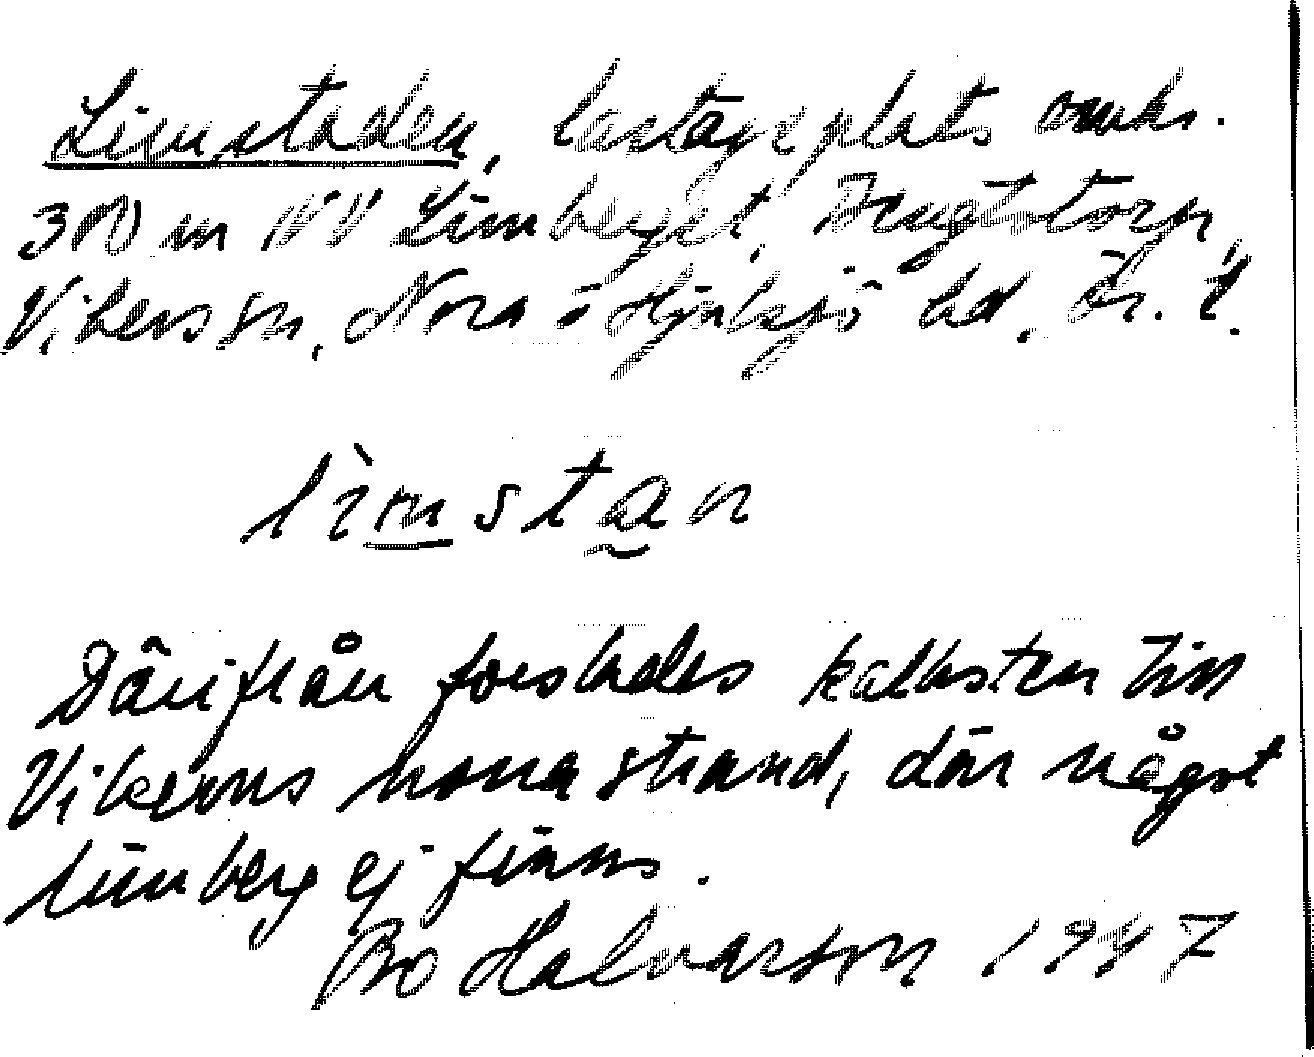 Limstaden, lastageplats omkr.
300 m NV Limberget, Hengstorp,
Vikers sn, Nora o Hjulsjö hd, Ör. l.
lìmstan
Därifrån forslades kalksten till
Vikerns norra strand, där något
limberg ej finns.
Bo Halvarson 1947